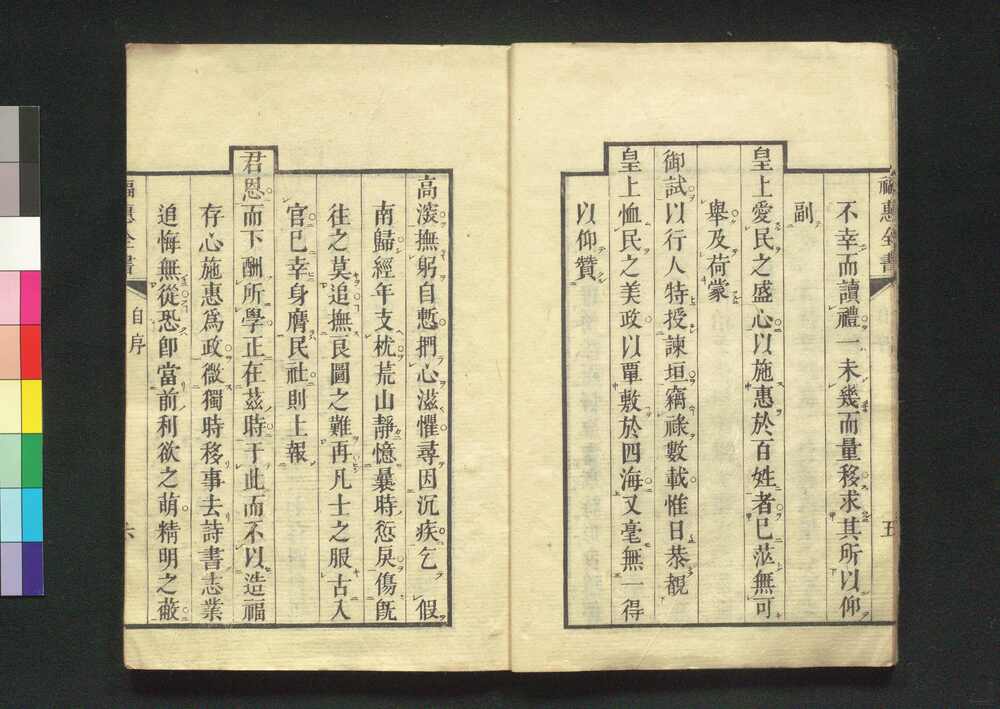 福惠全書
五
不幸而讀禮一未幾而量移求其所以仰
副
皇上愛民之盛心以施惠於百姓者已茫無可
舉及荷蒙
御試以行人特授諫垣竊祿數載惟日恭覩
皇上恤民之美政以覃敷於四海又毫無一得
以仰贊
高深撫躬自慙捫心滋懼尋因沉疾乞假
南歸經年支枕荒山靜憶曩時愆戾傷旣
往之莫追撫良圖之難再凡士之服古入
官已幸身膺民社則上報
君恩而下酬所學正在茲時于此而不以造福
存心施惠爲政微獨時移事去詩書志業
追悔無從恐卽當前利欲之萌精明之蔽
福惠全書
自序
六